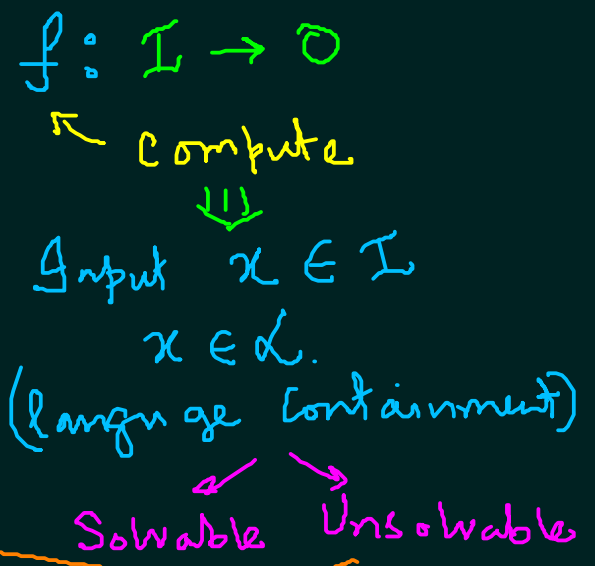 f : I → O
compute
⇓
Input x ∈ I
x ∈ L.
(language containment)
Solvable Unsolvable